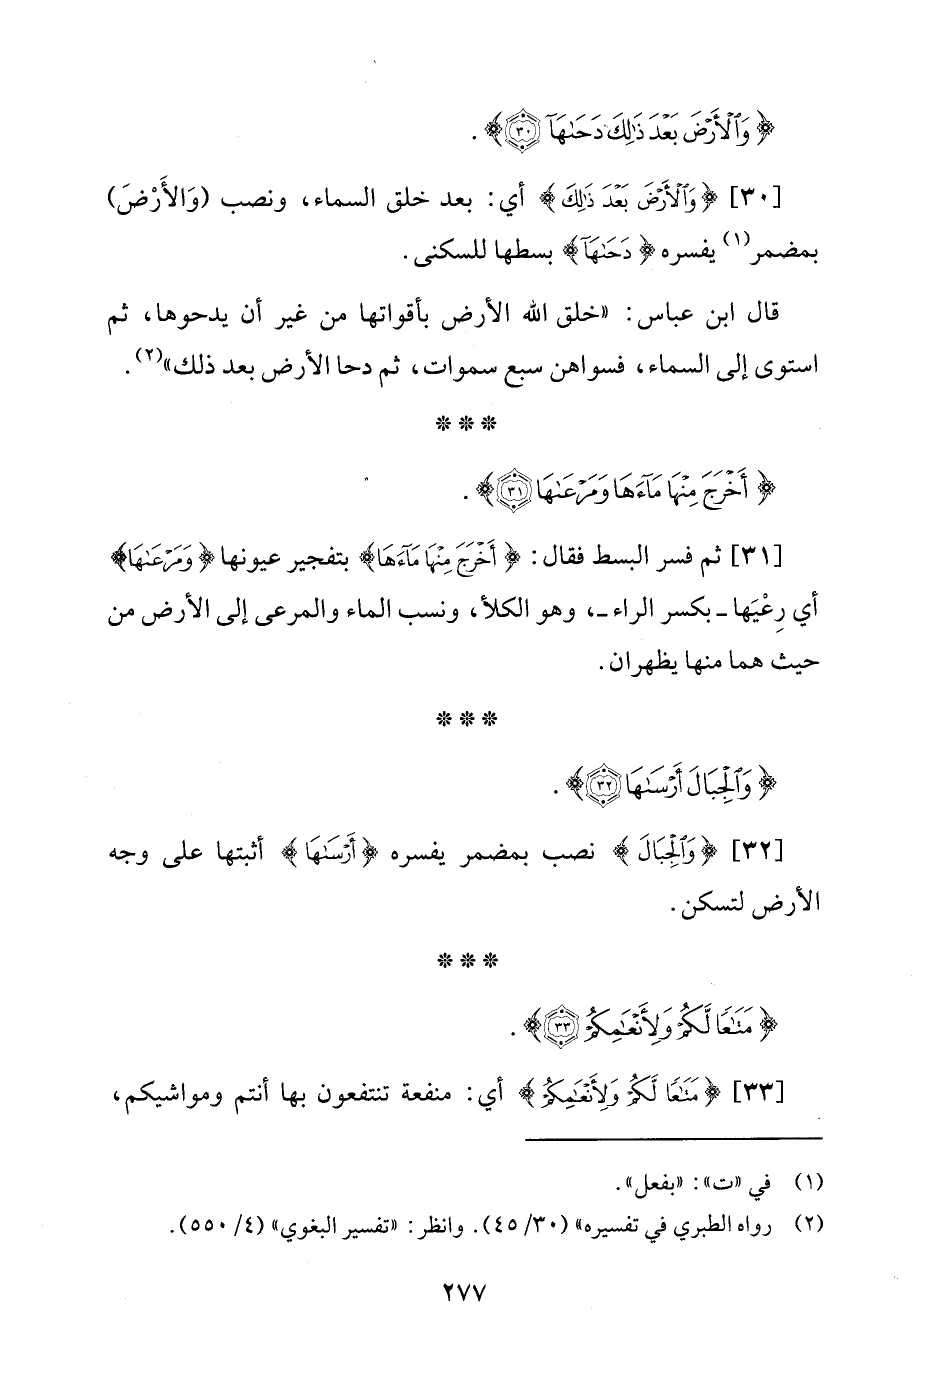 ﴿ وَٱلْأَرْضَ بَعْدَ ذَٰلِكَ دَحَىٰهَآ ۝٣٠ ﴾ .
[٣٠] ﴿ وَٱلْأَرْضَ بَعْدَ ذَٰلِكَ ﴾ أي: بعد خلق السماء، ونصب (وَالأَرْضَ)
بمضمر(١) يفسره ﴿ دَحَىٰهَآ ﴾ بسطها للسكنى.
قال ابن عباس: «خلق الله الأرض بأقواتها من غير أن يدحوها، ثم
استوى إلى السماء، فسواهن سبع سموات، ثم دحا الأرض بعد ذلك»(٢).
* * *
﴿ أَخْرَجَ مِنْهَا مَآءَهَا وَمَرْعَىٰهَا ۝٣١ ﴾ .
[٣١] ثم فسر البسط فقال: ﴿ أَخْرَجَ مِنْهَا مَآءَهَا ﴾ بتفجير عيونها ﴿ وَمَرْعَىٰهَا ﴾
أي رِعْيَها ـ بكسر الراء ـ، وهو الكلأ، ونسب الماء والمرعى إلى الأرض من
حيث هما منها يظهران.
* * *
﴿ وَٱلْجِبَالَ أَرْسَىٰهَا ۝٣٢ ﴾ .
[٣٢] ﴿ وَٱلْجِبَالَ ﴾ نصب بمضمر يفسره ﴿ أَرْسَىٰهَا ﴾ أثبتها على وجه
الأرض لتسكن.
* * *
﴿ مَتَٰعًا لَّكُمْ وَلِأَنْعَٰمِكُمْ ۝٣٣ ﴾ .
[٣٣] ﴿ مَتَٰعًا لَّكُمْ وَلِأَنْعَٰمِكُمْ ﴾ أي: منفعة تنتفعون بها أنتم ومواشيكم،
(١) في «ت»: «بفعل».
(٢) رواه الطبري في تفسيره» (٣٠/ ٤٥). وانظر: «تفسير البغوي» (٤/ ٥٥٠).
٢٧٧